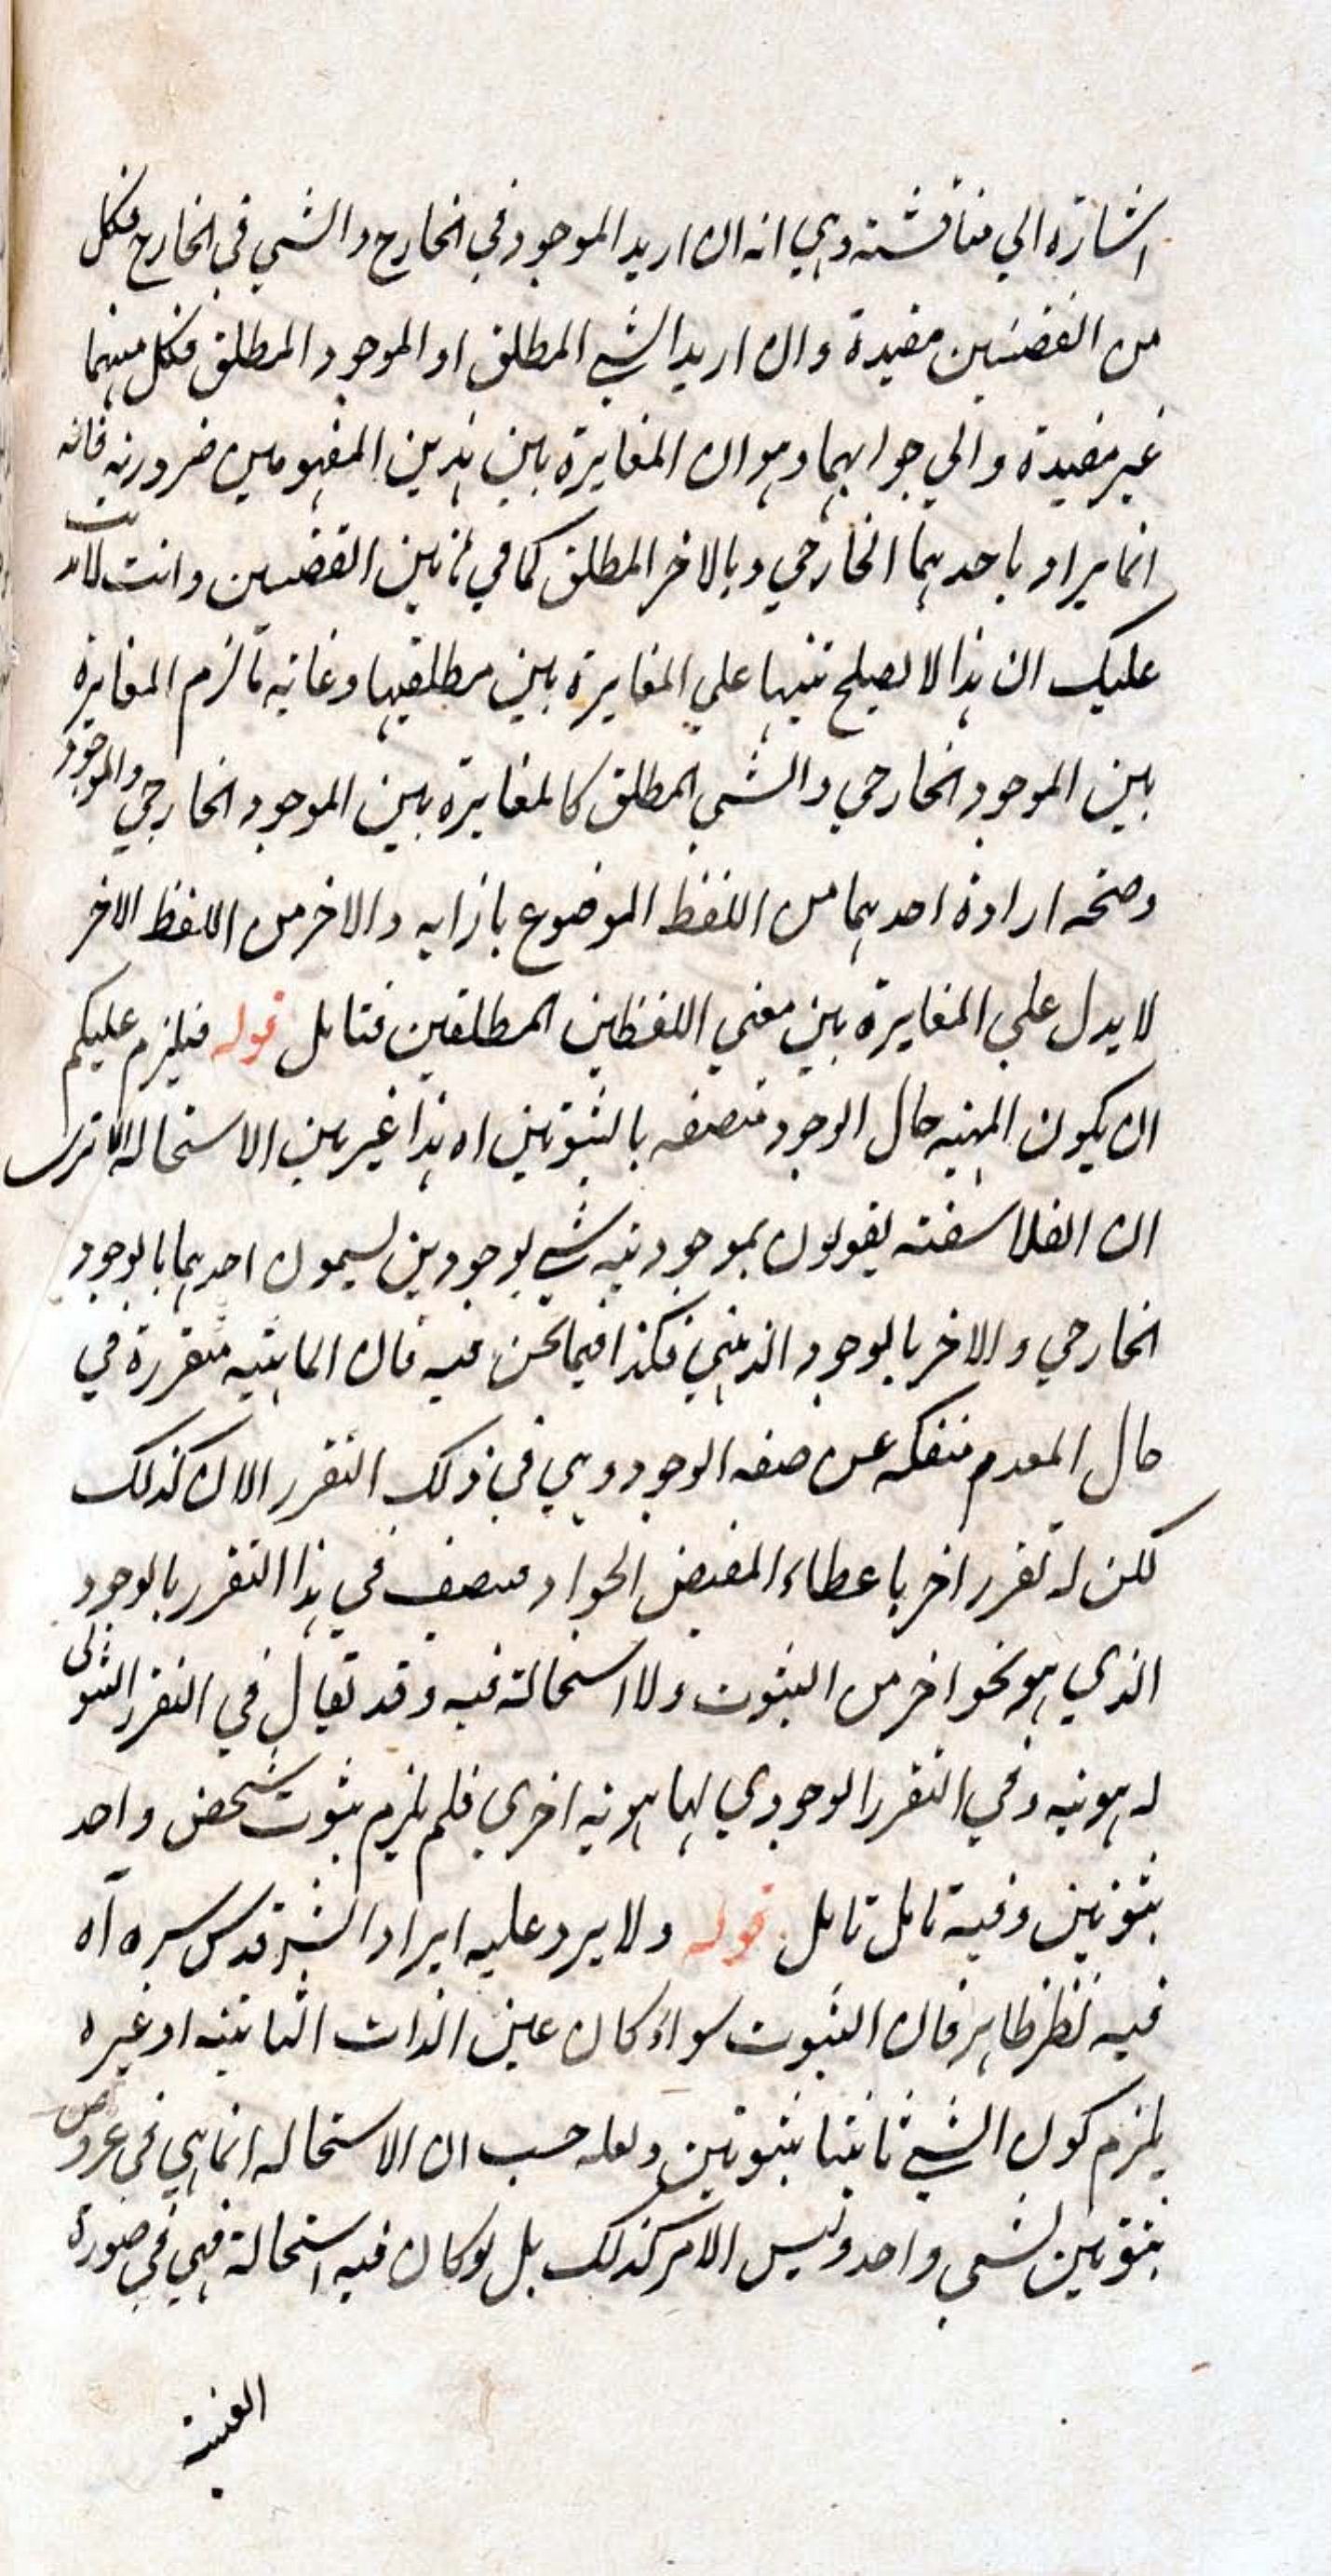 اشارة الي مناقشته وهي انه ان اريد الموجود في الخارج والشي في الخارج فكل
من القضيتين مقيدة وان اريد الشي المطلق او الموجود المطلق فكل منهما
غير مفيدة والي جوابهما وهو ان المغايرة بين هذين المفهومين ضرورية فانه
انما يراد باحدهما الخارجي وبالاخر المطلق كما في هاتين القضيتين وانت لا
عليك ان هذا لا يصلح تنبيها علي المغايرة بين مطلقيهما وغاية ما لزم المغايرة
بين الموجود الخارجي والشي المطلق كالمغايرة بين الموجود الخارجي والموجود
وصحة ارادة احدهما من اللفظ الموضوع بازايه والاخر من اللفظ الاخر
لا يدل علي المغايرة بين معني اللفظين المطلقين فتامل قوله فيلزم عليكم
ان يكون المهية حال الوجود متصفه بالثبوتين اه هذا غير بين الاستحالة الا تري
ان الفلاسفة يقولون بموجودية شي بوجودين يسمون احدهما بالوجود
الخارجي والاخر بالوجود الذهني فكذا فيما نحن فيه فان الماهية متقررة في
حال العدم منفكه عن صفه الوجود وهي في ذلك التقرر الان كذلك
لكن له تقرر اخر باعطاء المفيض الجواد متصف في هذا التقرر بالوجود
الذي هو نحو اخر من الثبوت ولا استحالة فيه وقد يقال في التقرر الثبوتي
له هوية وفي التقرر الوجودي لها هوية اخري فلم يلزم ثبوت شخص واحد
بثبوتين وفيه تامل تامل قوله ولا يرد عليه ايراد الش قدس سره اه
فيه نظر ظاهر فان الثبوت سواء كان عين الذات الثابتة او غيره
يلزم كون الشي ثابتا بثبوتين ولعله حسب ان الاستحالة انما هي في عروض
ثبوتين لشي واحد وليس الامر كذلك بل لو كان فيه استحالة فهي في صورة
العينية